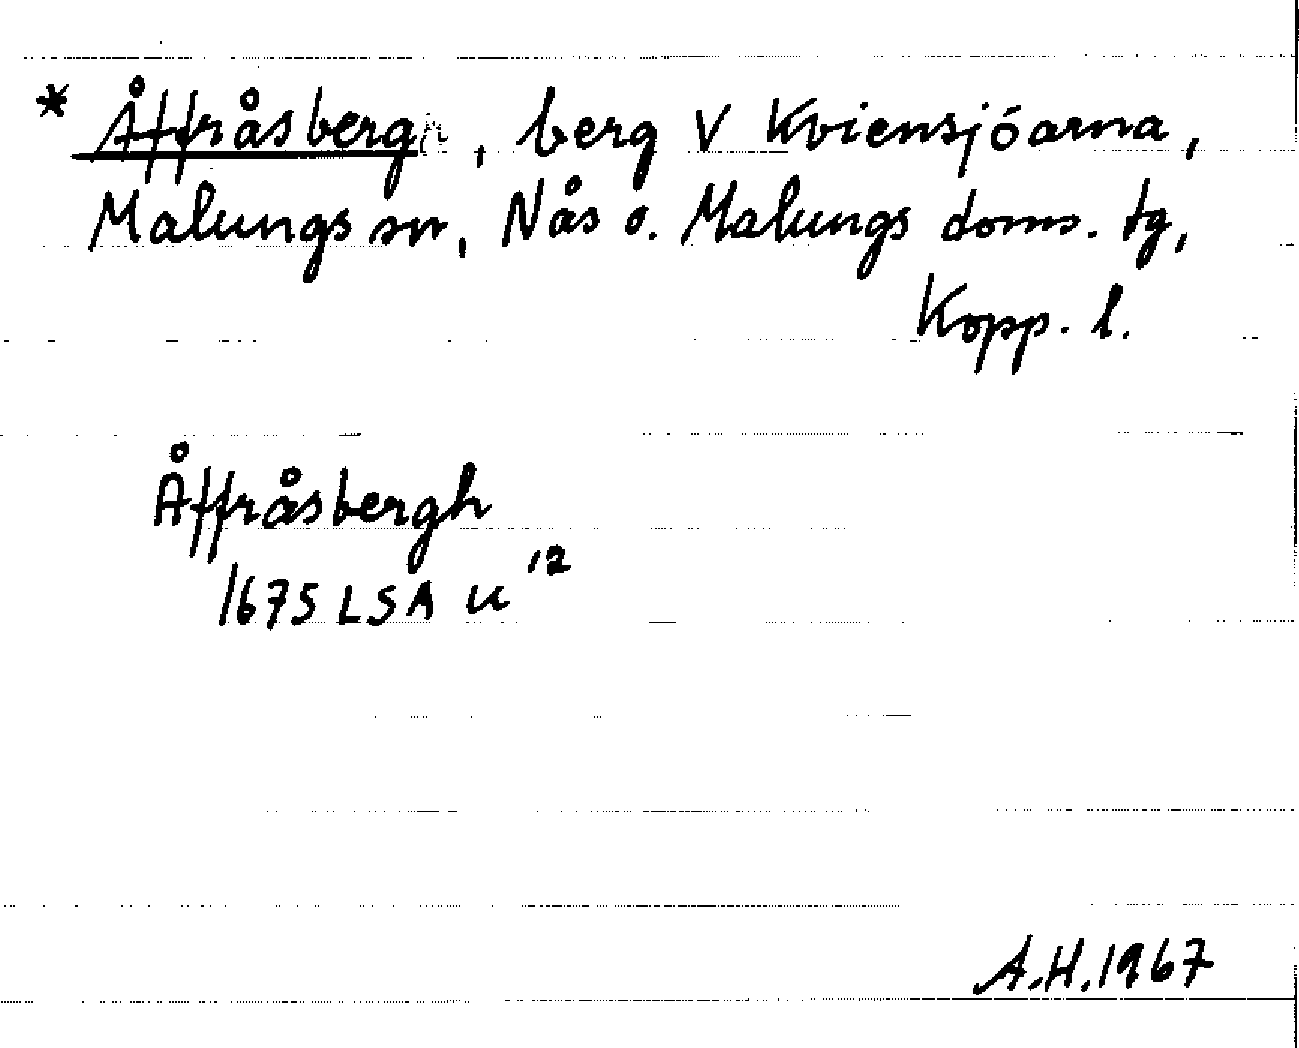 * Åffråsberg, berg V Kviensjöarna,
Malungs sn, Nås o. Malungs doms. tg,
Kopp. l.
Åffråsbergh
1675 LSA U 12
A.H. 1967